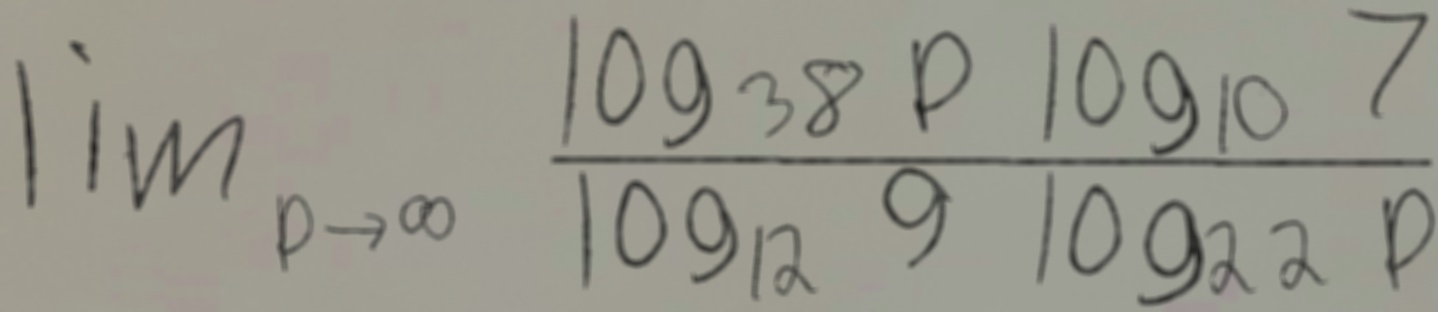 \lim_{p \to \infty} \frac{\log_{38} p \log_{10} 7}{\log_{12} 9 \log_{22} p}